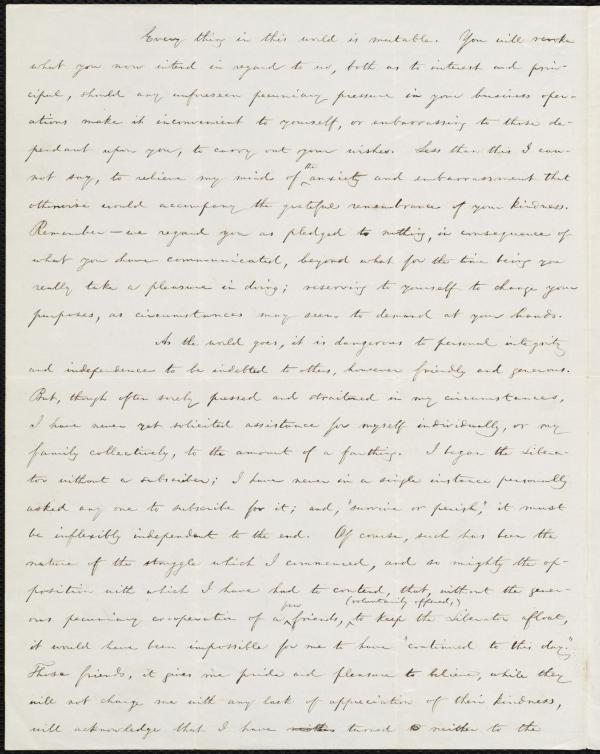 Every thing in this world is mutable. You will revoke
what you now intend in regard to us, both as to interest and prin-
cipal, should any unforeseen pecuniary pressure in your business oper-
ations make it inconvenient to yourself, or embarrassing to those de-
pendant upon you, to carry out your wishes. Less than this I can-
not say, to relieve my mind of the anxiety and embarrassment that
otherwise would accompany the grateful remembrance of your kindness.
Remember—we regard you as pledged to nothing, in consequence of
what you have communicated, beyond what for the time being you
really take a pleasure in doing; reserving to yourself to change your
purposes, as circumstances may seem to demand at your hands.
As the world goes, it is dangerous to personal integrity
and independence to be indebted to others, however friendly and generous.
But, though often sorely pressed and straitened in my circumstances,
I have never yet solicited assistance for myself individually, or my
family collectively, to the amount of a farthing. I began the Libera-
tor without a subscriber; I have never in a single instance personally
asked any one to subscribe for it; and, "survive or perish," it must
be inflexibly independent to the end. Of course, such has been the
nature of the struggle which I commenced, and so mighty the op-
position with which I have had to contend, that, without the gener-
ous pecuniary co-operation of a few friends, (voluntarily offered,) to keep the Liberator afloat,
it would have been impossible for me to have "continued to this day."
Those friends, it gives me pride and pleasure to believe, while they
will not charge me with any lack of appreciation of their kindness,
will acknowledge that I have turned neither to the